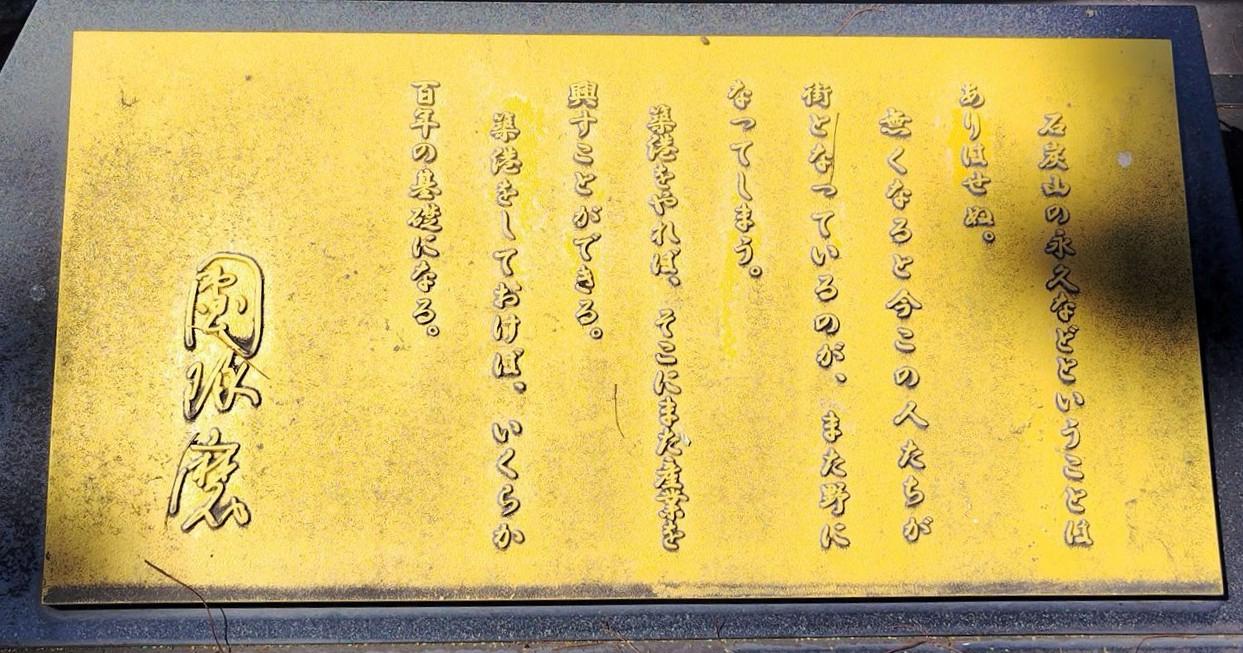 石炭山の永久などということは
ありはせぬ。
無くなると今この人たちが
街となっているのが、また野に
なってしまう。
築港をやれば、そこにまた産業を
興すことができる。
築港をしておけば、いくらか
百年の基礎になる。
團琢磨